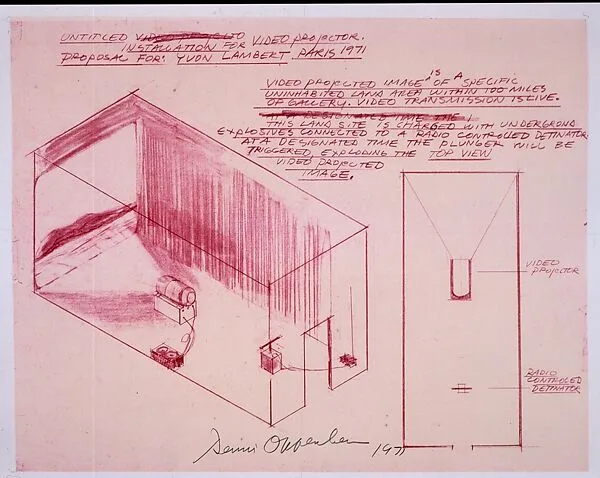 UNTITLED VIDEO PROJECTO
INSTALLATION FOR VIDEO PROJECTOR.
PROPOSAL FOR: YVON LAMBERT PARIS 1971
VIDEO PROJECTED IMAGE IS OF A SPECIFIC
UNINHABITED LAND AREA WITHIN 100 MILES
OF GALLERY. VIDEO TRANSMISSION IS LIVE.
AT A DESIGNATED TIME THE
THIS LAND SITE IS CHARGED WITH UNDERGROND
EXPLOSIVES CONNECTED TO A RADIO CONTROLED DETINATOR
AT A DESIGNATED TIME THE PLUNGER WILL BE
TRIGGERED EXPLODING THE
VIDEO PROJECTED
IMAGE.
TOP VIEW
VIDEO
PROJECTOR
RADIO
CONTROLED
DETINATOR
Dennis Oppenheim 1971